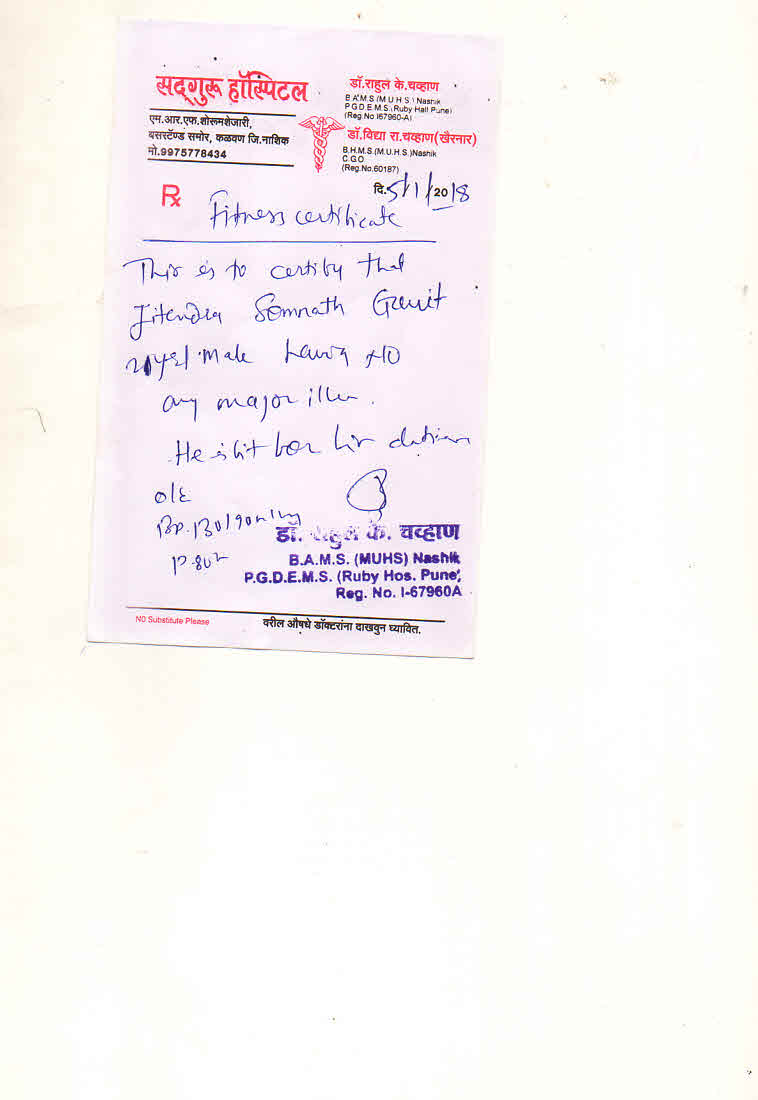 सद्गुरू हॉस्पिटल
एम.आर.एफ.शोरूमशेजारी,
बसस्टॅण्ड समोर, कळवण जि.नाशिक
मो.9975778434
डॉ.राहुल के.चव्हाण
B.A.M.S (M.U.H.S.) Nashik
P.G.D.E.M.S.(Ruby Hall Pune)
(Reg.No I67960-A)
डॉ.विद्या रा.चव्हाण(खैरनार)
B.H.M.S.(M.U.H.S.)Nashik
C.G.O
(Reg.No.60187)
दि.5/1/2018
Rx
Fitness certificate
This is to certify that
Jitendra Somnath
male having no
any major
He is fit for his
O/E
BP. 130/90
P.
डॉ. राहुल के. चव्हाण
B.A.M.S. (MUHS) Nashik
P.G.D.E.M.S. (Ruby Hos. Pune)
Reg. No. I-67960A
NO Substitute Please
वरील औषधे डॉक्टरांना दाखवुन घ्यावित.